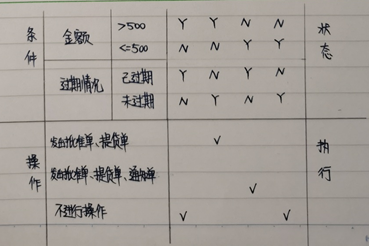 条件 金额 >500 Y Y N N 状态
<=500 N N Y Y
过期情况 已过期 Y N Y N
未过期 N Y N Y
操作 发出批准单、提货单 ✓ 执行
发出批准单、提货单、通知单 ✓
不进行操作 ✓ ✓